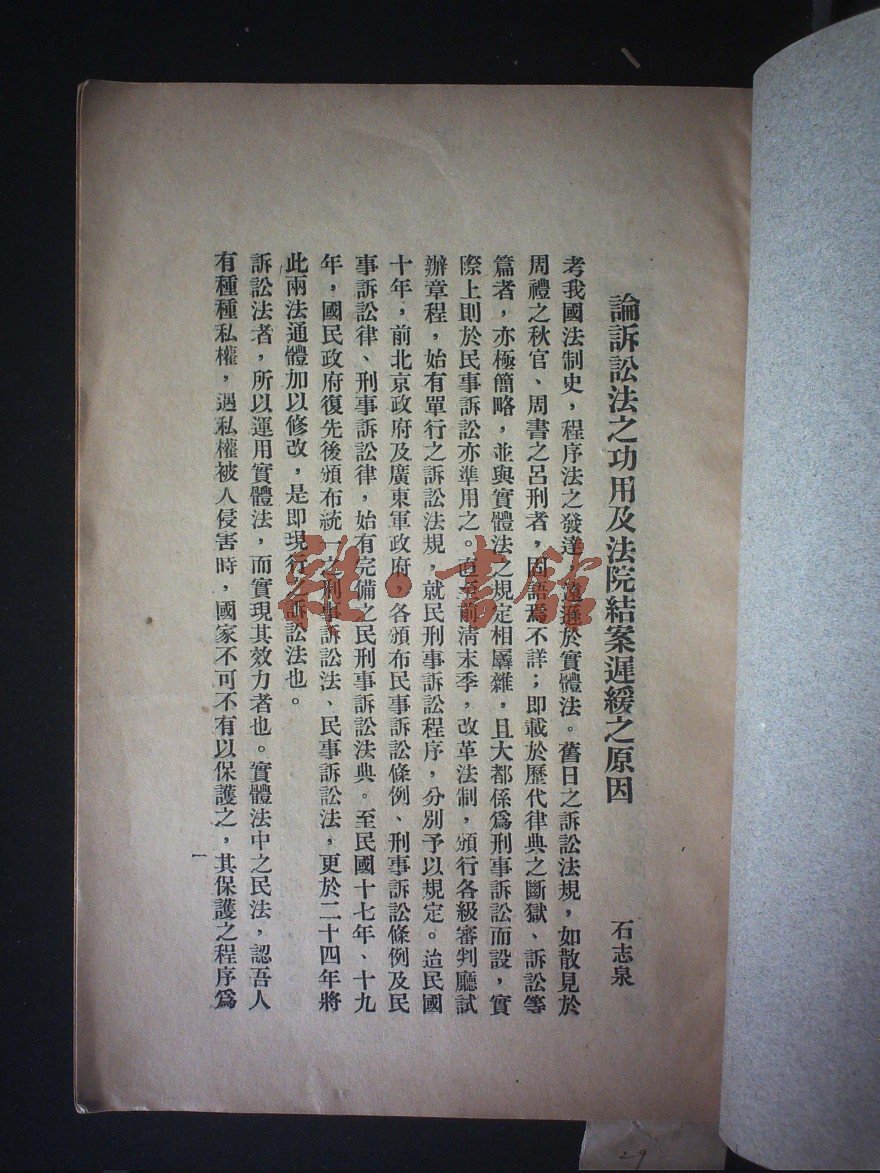 論訴訟法之功用及法院結案遲緩之原因
石志泉
考我國法制史，程序法之發達，遠遜於實體法。舊日之訴訟法規，如散見於
周禮之秋官、周書之呂刑者，固語焉不詳；即載於歷代律典之斷獄、訴訟等
篇者，亦極簡略，並與實體法之規定相羼雜，且大都係爲刑事訴訟而設，實
際上則於民事訴訟亦準用之。直至前清末季，改革法制，頒行各級審判廳試
辦章程，始有單行之訴訟法規，就民刑事訴訟程序，分別予以規定。迨民國
十年，前北京政府及廣東軍政府，各頒布民事訴訟條例、刑事訴訟條例及民
事訴訟律、刑事訴訟律，始有完備之民刑事訴訟法典。至民國十七年、十九
年，國民政府復先後頒布統一之刑事訴訟法、民事訴訟法，更於二十四年將
此兩法通體加以修改，是即現行之訴訟法也。
訴訟法者，所以運用實體法，而實現其效力者也。實體法中之民法，認吾人
有種種私權，遇私權被人侵害時，國家不可不有以保護之，其保護之程序爲
一
雜·書館
29